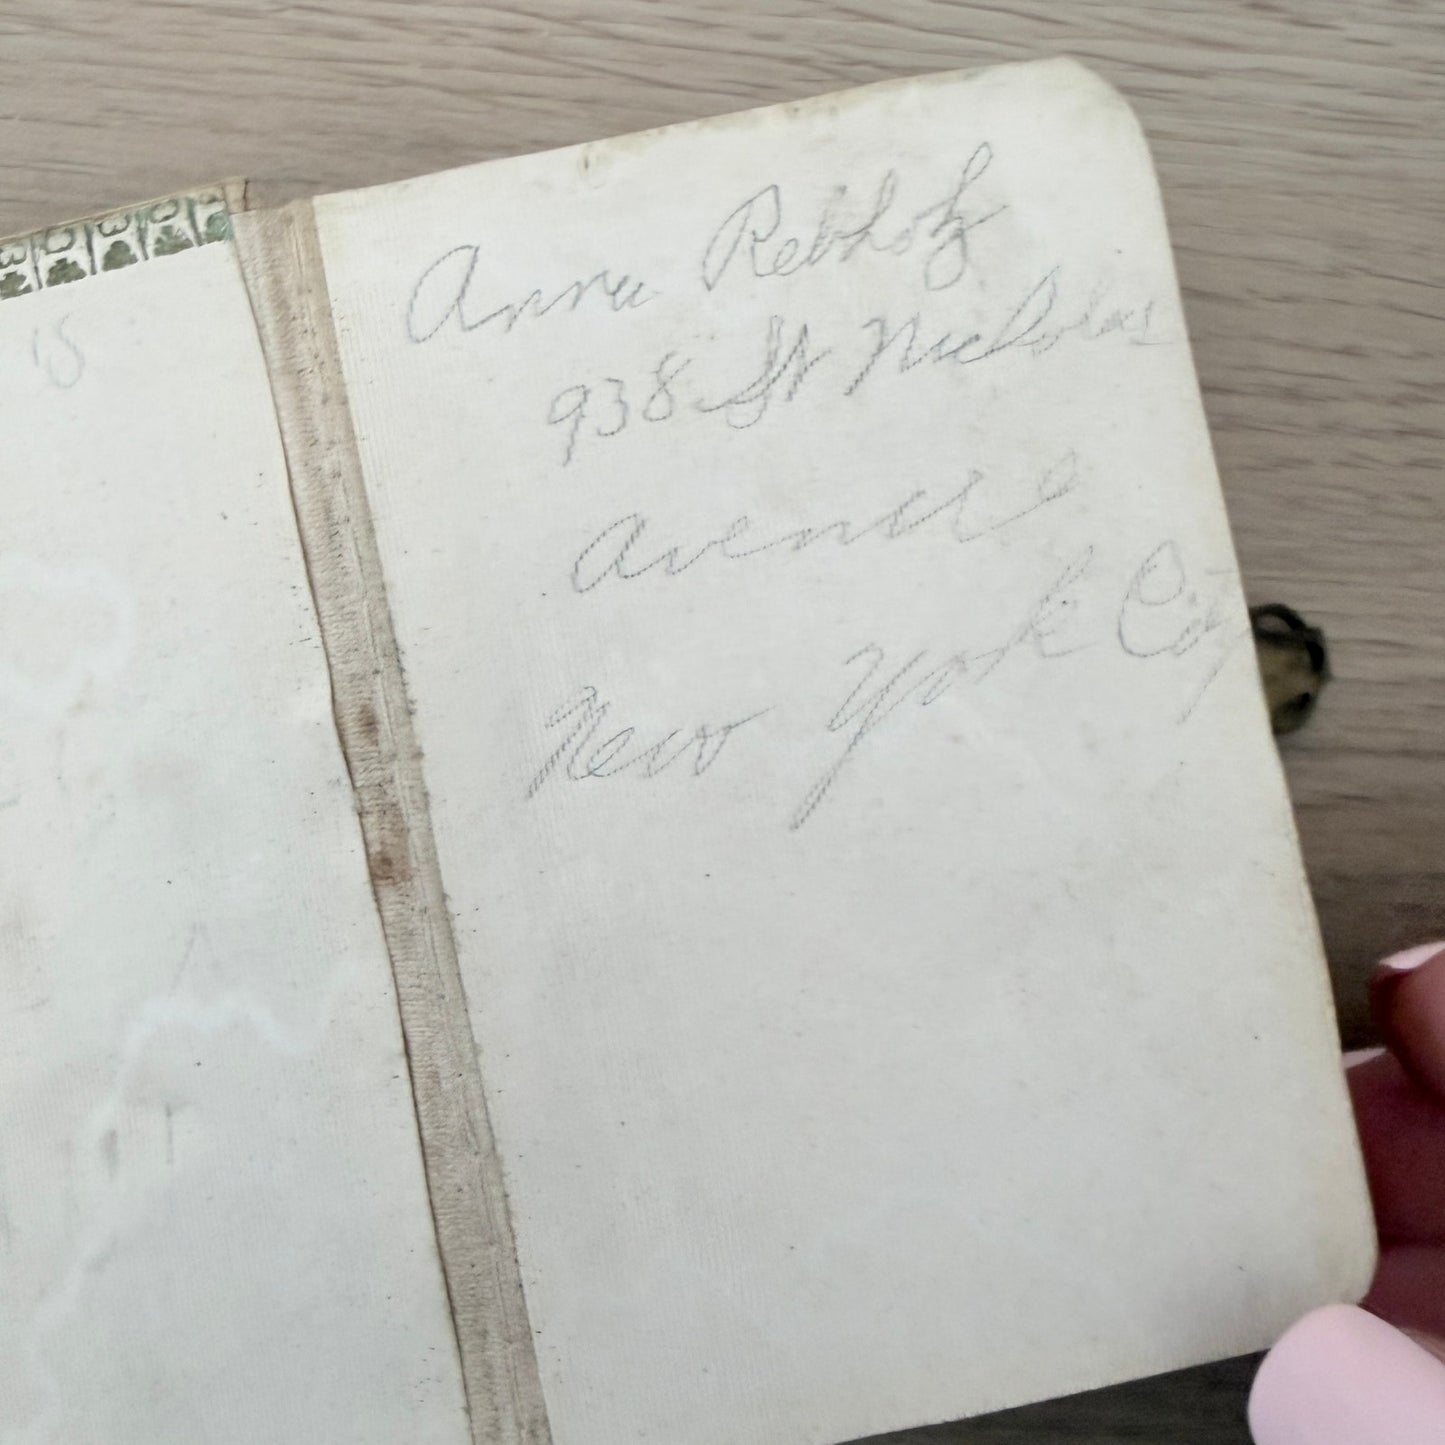 Anna Rebholz
938 St Nicholas
Avenue
New York City